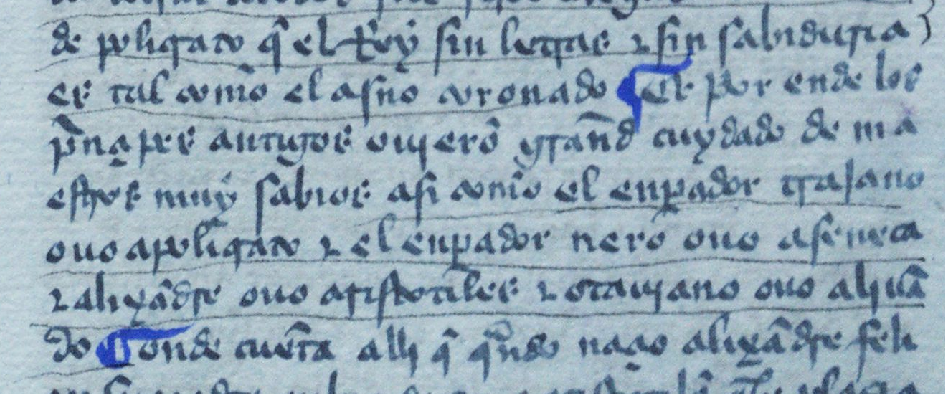 de poligato q̃ el Rey sin letras ⁊ sin sabiduria
es tal com̃o el asno coronado Et por ende los
pñçipes antigos ouierõ grañd cuydado de ma
estros muy sabios asi com̃o el enꝑador trajano
ouo apoligato ⁊ el enꝑador nero ouo aseneca
⁊ alixãdre ouo aristotiles ⁊ otauiano ouo alixã
do Onde cuẽta alli q̃ qũndo naçio alixãdre feli